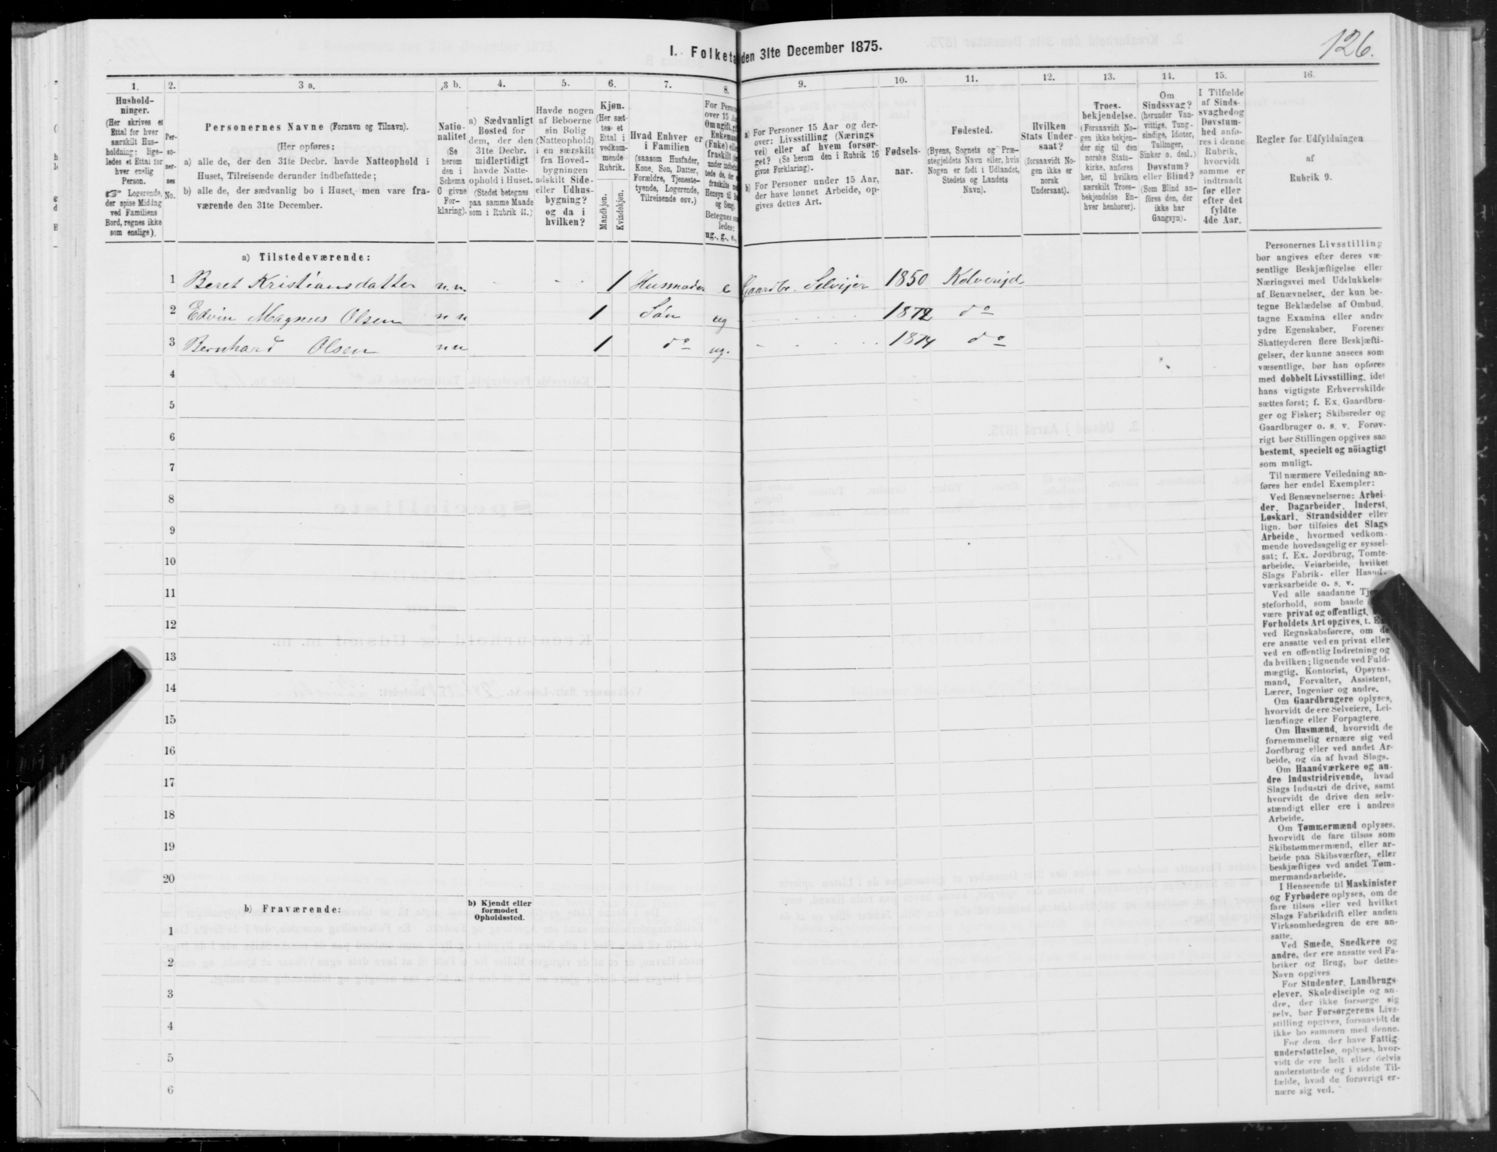 126.
I. Folketæ den 31te December 1875.
1.
Hushold-
ninger.
(Her skrives et
Ettal for hver
særskilt Hus-
holdning; lige-
ledes et Ettal for
hver enslig
Person.
☞ Logerende,
der spise Middag
ved Familiens
Bord, regnes ikke
som enslige).
2.
Per-
so-
ner-
nes
No.
3 a.
Personernes Navne (Fornavn og Tilnavn).
(Her opføres:
a) alle de, der den 31te Decbr. havde Natteophold i
Huset, Tilreisende derunder indbefattede;
b) alle de, der sædvanlig bo i Huset, men vare fra-
værende den 31te December.
3 b.
Natio-
nalitet
(Se
herom
den i
Schema
O givne
For-
klaring).
4.
a) Sædvanligt
Bosted for
dem, der den
31te Decbr.
midlertidigt
havde Natte-
ophold i Huset.
(Stedet betegnes
paa samme Maade
som i Rubrik 11.)
5.
Havde nogen
af Beboerne
sin Bolig
(Natteophold)
i en særskilt
fra Hoved-
bygningen
adskilt Side-
eller Udhus-
bygning?
og da i
hvilken?
6.
Kjøn.
(Her sæt-
tes et
Ettal i
vedkom-
mende
Rubrik.
Mandkjøn.
Kvindekjøn.
7.
Hvad Enhver er
i Familien
(saasom Husfader,
Kone, Søn, Datter,
Forældre, Tjeneste-
tyende, Logerende,
Tilreisende osv.)
8.
For Perso
over 15 A
Om ugift, gi
Enkemand
(Enke) elle
fraskilt
ug., g., e.,
9.
a) For Personer 15 Aar og der-
over: Livsstilling (Nærings
vei) eller af hvem forsør-
get? (Se herom den i Rubrik 16
givne Forklaring).
b) For Personer under 15 Aar,
der have lønnet Arbeide, op-
gives dettes Art.
10.
Fødsels-
aar.
11.
Fødested.
(Byens, Sognets og Præ-
stegjeldets Navn eller, hvis
Nogen er født i Udlandet,
Stedets og Landets
Navn).
12.
Hvilken
Stats Under-
saat?
(forsaavidt No-
gen ikke er
norsk
Undersaat).
13.
Troes-
bekjendelse.
(Forsaavidt No-
gen ikke bekjen-
der sig til den
norske Stats-
kirke, anføres
her, til hvilken
særskilt Troes-
bekjendelse En-
hver henhører).
14.
Om
Sindssvag?
(herunder Van-
vittige, Tung-
sindige, Idioter,
Tullinger,
Sinker o. desl.)
Døvstum?
eller Blind?
(Som Blind an-
føres den, der
ikke har
Gangsyn).
15.
I Tilfælde
af Sinds-
svaghed og
Døvstum-
hed anfø-
res i denne
Rubrik,
hvorvidt
samme er
indtraadt
før eller
efter det
fyldte
4de Aar.
16.
Regler for Udfyldningen
af
Rubrik 9.
a) Tilstedeværende:
1 Beret Kristiansdatter n.n. 1 Husmoder e Gaardbr. Selvejer 1850 Kolvereid
2 Edvin Magnus Olsen n n 1 Søn ug 1872 do
3 Bernhard Olsen n n 1 do ug. 1874 do
4
5
6
7
8
9
10
11
12
13
14
15
16
17
18
19
20
b) Fraværende:
b) Kjendt eller
formodet
Opholdssted.
1
2
3
4
5
6
Personernes Livsstilling
bør angives efter deres væ-
sentlige Beskjæftigelse eller
Næringsvei med Udelukkelse
af Benævnelser, der kun be-
tegne Beklædelse af Ombud,
tagne Examina eller andre
ydre Egenskaber. Forener
Skatteyderen flere Beskjæfti-
gelser, der kunne ansees som
væsentlige, bør han opføres
med dobbelt Livsstilling, idet
hans vigtigste Erhvervskilde
sættes først; f. Ex. Gaardbru-
ger og Fisker; Skibsreder og
Gaardbruger o. s. v. Forøv-
rigt bør Stillingen opgives saa
bestemt, specielt og nöiagtigt
som muligt.
Til nærmere Veiledning an-
føres her endel Exempler:
Ved Benævnelserne: Arbei-
der, Dagarbeider, Inderst,
Løskarl, Strandsidder eller
lign. bør tilføies det Slags
Arbeide, hvormed vedkom-
mende hovedsagelig er syssel-
sat; f. Ex. Jordbrug, Tomte-
arbeide, Veiarbeide, hvilket
Slags Fabrik- eller Haand-
værksarbeide o. s. v.
Ved alle saadanne Tje
steforhold, som baade
være privat og offentligt,
Forholdets Art opgives, t. Ex
ved Regnskabsførere, om de
ere ansatte ved en privat eller
ved en offentlig Indretning og
da hvilken; lignende ved Fuld-
mægtig, Kontorist, Opsyns-
mand, Forvalter, Assistent,
Lærer, Ingeniør og andre.
Om Gaardbrugere oplyses,
hvorvidt de ere Selveiere, Lei-
lændinge eller Forpagtere.
Om Husmænd, hvorvidt de
fornemmelig ernære sig ved
Jordbrug eller ved andet Ar-
beide, og da af hvad Slags.
Om Haandværkere og an-
dre Industridrivende, hvad
Slags Industri de drive, samt
hvorvidt de drive den selv-
stændigt eller ere i andres
Arbeide.
Om Tømmermænd oplyses,
hvorvidt de fare tilsøs som
Skibstømmermænd, eller ar-
beide paa Skibsværfter, eller
beskjæftiges ved andet Tøm-
mermandsarbeide.
I Henseende til Maskinister
og Fyrbødere oplyses, om de
fare tilsøs eller ved hvilket
Slags Fabrikdrift eller anden
Virksomhedsgren de ere an-
satte.
Ved Smede, Snedkere og
andre, der ere ansatte ved Fa-
briker og Brug, bør dettes
Navn opgives
For Studenter, Landbrugs-
elever, Skoledisciple og an-
dre, der ikke forsørge sig
selv, bør Forsørgerens Livs-
stilling opgives, forsaavidt de
ikke bo sammen med denne.
For dem, der have Fattig-
understøttelse, oplyses, hvor-
vidt de ere helt eller delvis
understøttede og i sidste Til-
fælde, hvad de forøvrigt er-
nære sig ved.